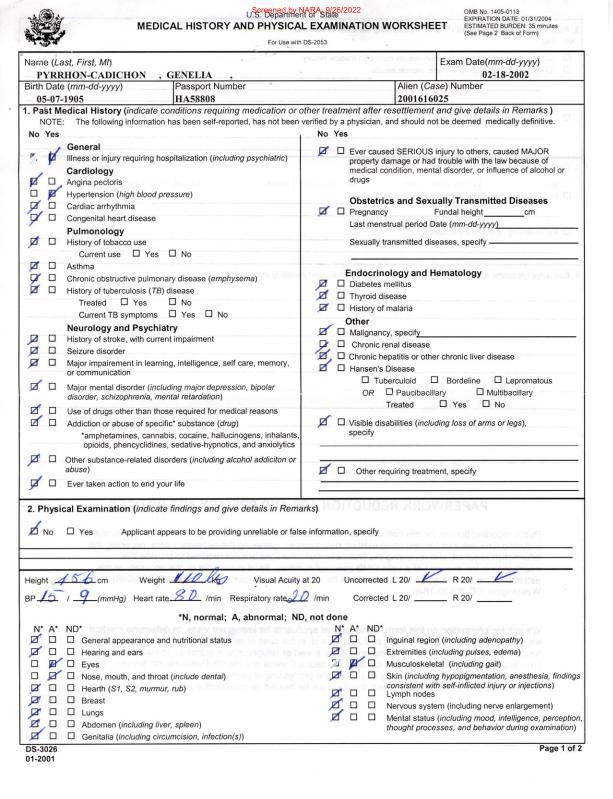 Screened by NARA, 9/26/2022
U.S. Department of State
MEDICAL HISTORY AND PHYSICAL EXAMINATION WORKSHEET
For Use with DS-2053
OMB No. 1405-0113
EXPIRATION DATE: 01/31/2004
ESTIMATED BURDEN: 35 minutes
(See Page 2 Back of Form)
Name (Last, First, MI)
PYRRHON-CADICHON , GENELIA ,
Exam Date(mm-dd-yyyy)
02-18-2002
Birth Date (mm-dd-yyyy)
05-07-1905
Passport Number
HA58808
Alien (Case) Number
2001616025
1. Past Medical History (indicate conditions requiring medication or other treatment after resettlement and give details in Remarks)
NOTE: The following information has been self-reported, has not been verified by a physician, and should not be deemed medically definitive.
No Yes
General
Illness or injury requiring hospitalization (including psychiatric)
Cardiology
Angina pectoris
Hypertension (high blood pressure)
Cardiac arrhythmia
Congenital heart disease
Pulmonology
History of tobacco use
Current use Yes No
Asthma
Chronic obstructive pulmonary disease (emphysema)
History of tuberculosis (TB) disease
Treated Yes No
Current TB symptoms Yes No
Neurology and Psychiatry
History of stroke, with current impairment
Seizure disorder
Major impairment in learning, intelligence, self care, memory,
or communication
Major mental disorder (including major depression, bipolar
disorder, schizophrenia, mental retardation)
Use of drugs other than those required for medical reasons
Addiction or abuse of specific* substance (drug)
*amphetamines, cannabis, cocaine, hallucinogens, inhalants,
opioids, phencyclidines, sedative-hypnotics, and anxiolytics
Other substance-related disorders (including alcohol addiciton or
abuse)
Ever taken action to end your life
No Yes
Ever caused SERIOUS injury to others, caused MAJOR
property damage or had trouble with the law because of
medical condition, mental disorder, or influence of alcohol or
drugs
Obstetrics and Sexually Transmitted Diseases
Pregnancy Fundal height cm
Last menstrual period Date (mm-dd-yyyy)
Sexually transmitted diseases, specify
Endocrinology and Hematology
Diabetes mellitus
Thyroid disease
History of malaria
Other
Malignancy, specify
Chronic renal disease
Chronic hepatitis or other chronic liver disease
Hansen's Disease
Tuberculoid Bordeline Lepromatous
OR Paucibacillary Multibacillary
Treated Yes No
Visible disabilities (including loss of arms or legs),
specify
Other requiring treatment, specify
2. Physical Examination (indicate findings and give details in Remarks)
No Yes Applicant appears to be providing unreliable or false information, specify
Height 156 cm Weight 110 kg Visual Acuity at 20 Uncorrected L 20/ R 20/
BP 15 / 9 (mmHg) Heart rate 80 /min Respiratory rate 20 /min Corrected L 20/ R 20/
*N, normal; A, abnormal; ND, not done
N* A* ND*
General appearance and nutritional status
Hearing and ears
Eyes
Nose, mouth, and throat (include dental)
Hearth (S1, S2, murmur, rub)
Breast
Lungs
Abdomen (including liver, spleen)
Genitalia (including circumcision, infection(s))
N* A* ND*
Inguinal region (including adenopathy)
Extremities (including pulses, edema)
Musculoskeletal (including gait)
Skin (including hypopigmentation, anesthesia, findings
consistent with self-inflicted injury or injections)
Lymph nodes
Nervous system (including nerve enlargement)
Mental status (including mood, intelligence, perception,
thought processes, and behavior during examination)
DS-3026
01-2001
Page 1 of 2